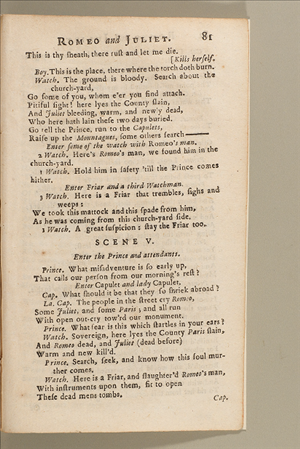 ROMEO and JULIET. 81
This is thy sheath, there rust and let me die.
[Kills herself.
Boy. This is the place, there where the torch doth burn.
Watch. The ground is bloody. Search about the
church-yard,
Go some of you, whom e'er you find attach.
Pitiful sight! here lyes the County slain,
And Juliet bleeding, warm, and newly dead,
Who here hath lain these two days buried.
Go tell the Prince, run to the Capulets,
Raise up the Mountagues, some others search———
Enter some of the watch with Romeo's man.
2 Watch. Here's Romeo's man, we found him in the
church-yard.
1 Watch. Hold him in safety 'till the Prince comes
hither.
Enter Friar and a third Watchman.
3 Watch. Here is a Friar that trembles, sighs and
weeps:
We took this mattock and this spade from him,
As he was coming from this church-yard side.
1 Watch. A great suspicion: stay the Friar too.
SCENE V.
Enter the Prince and attendants.
Prince. What misadventure is so early up,
That calls our person from our morning's rest?
Enter Capulet and lady Capulet.
Cap. What should it be that they so shriek abroad?
La. Cap. The people in the street cry Romeo,
Some Juliet, and some Paris; and all run
With open out-cry tow'rd our monument.
Prince. What fear is this which startles in your ears?
Watch. Sovereign, here lyes the County Paris slain,
And Romeo dead, and Juliet (dead before)
Warm and new kill'd.
Prince. Search, seek, and know how this foul mur-
ther comes.
Watch. Here is a Friar, and slaughter'd Romeo's man,
With instruments upon them, fit to open
These dead mens tombs.
Cap.